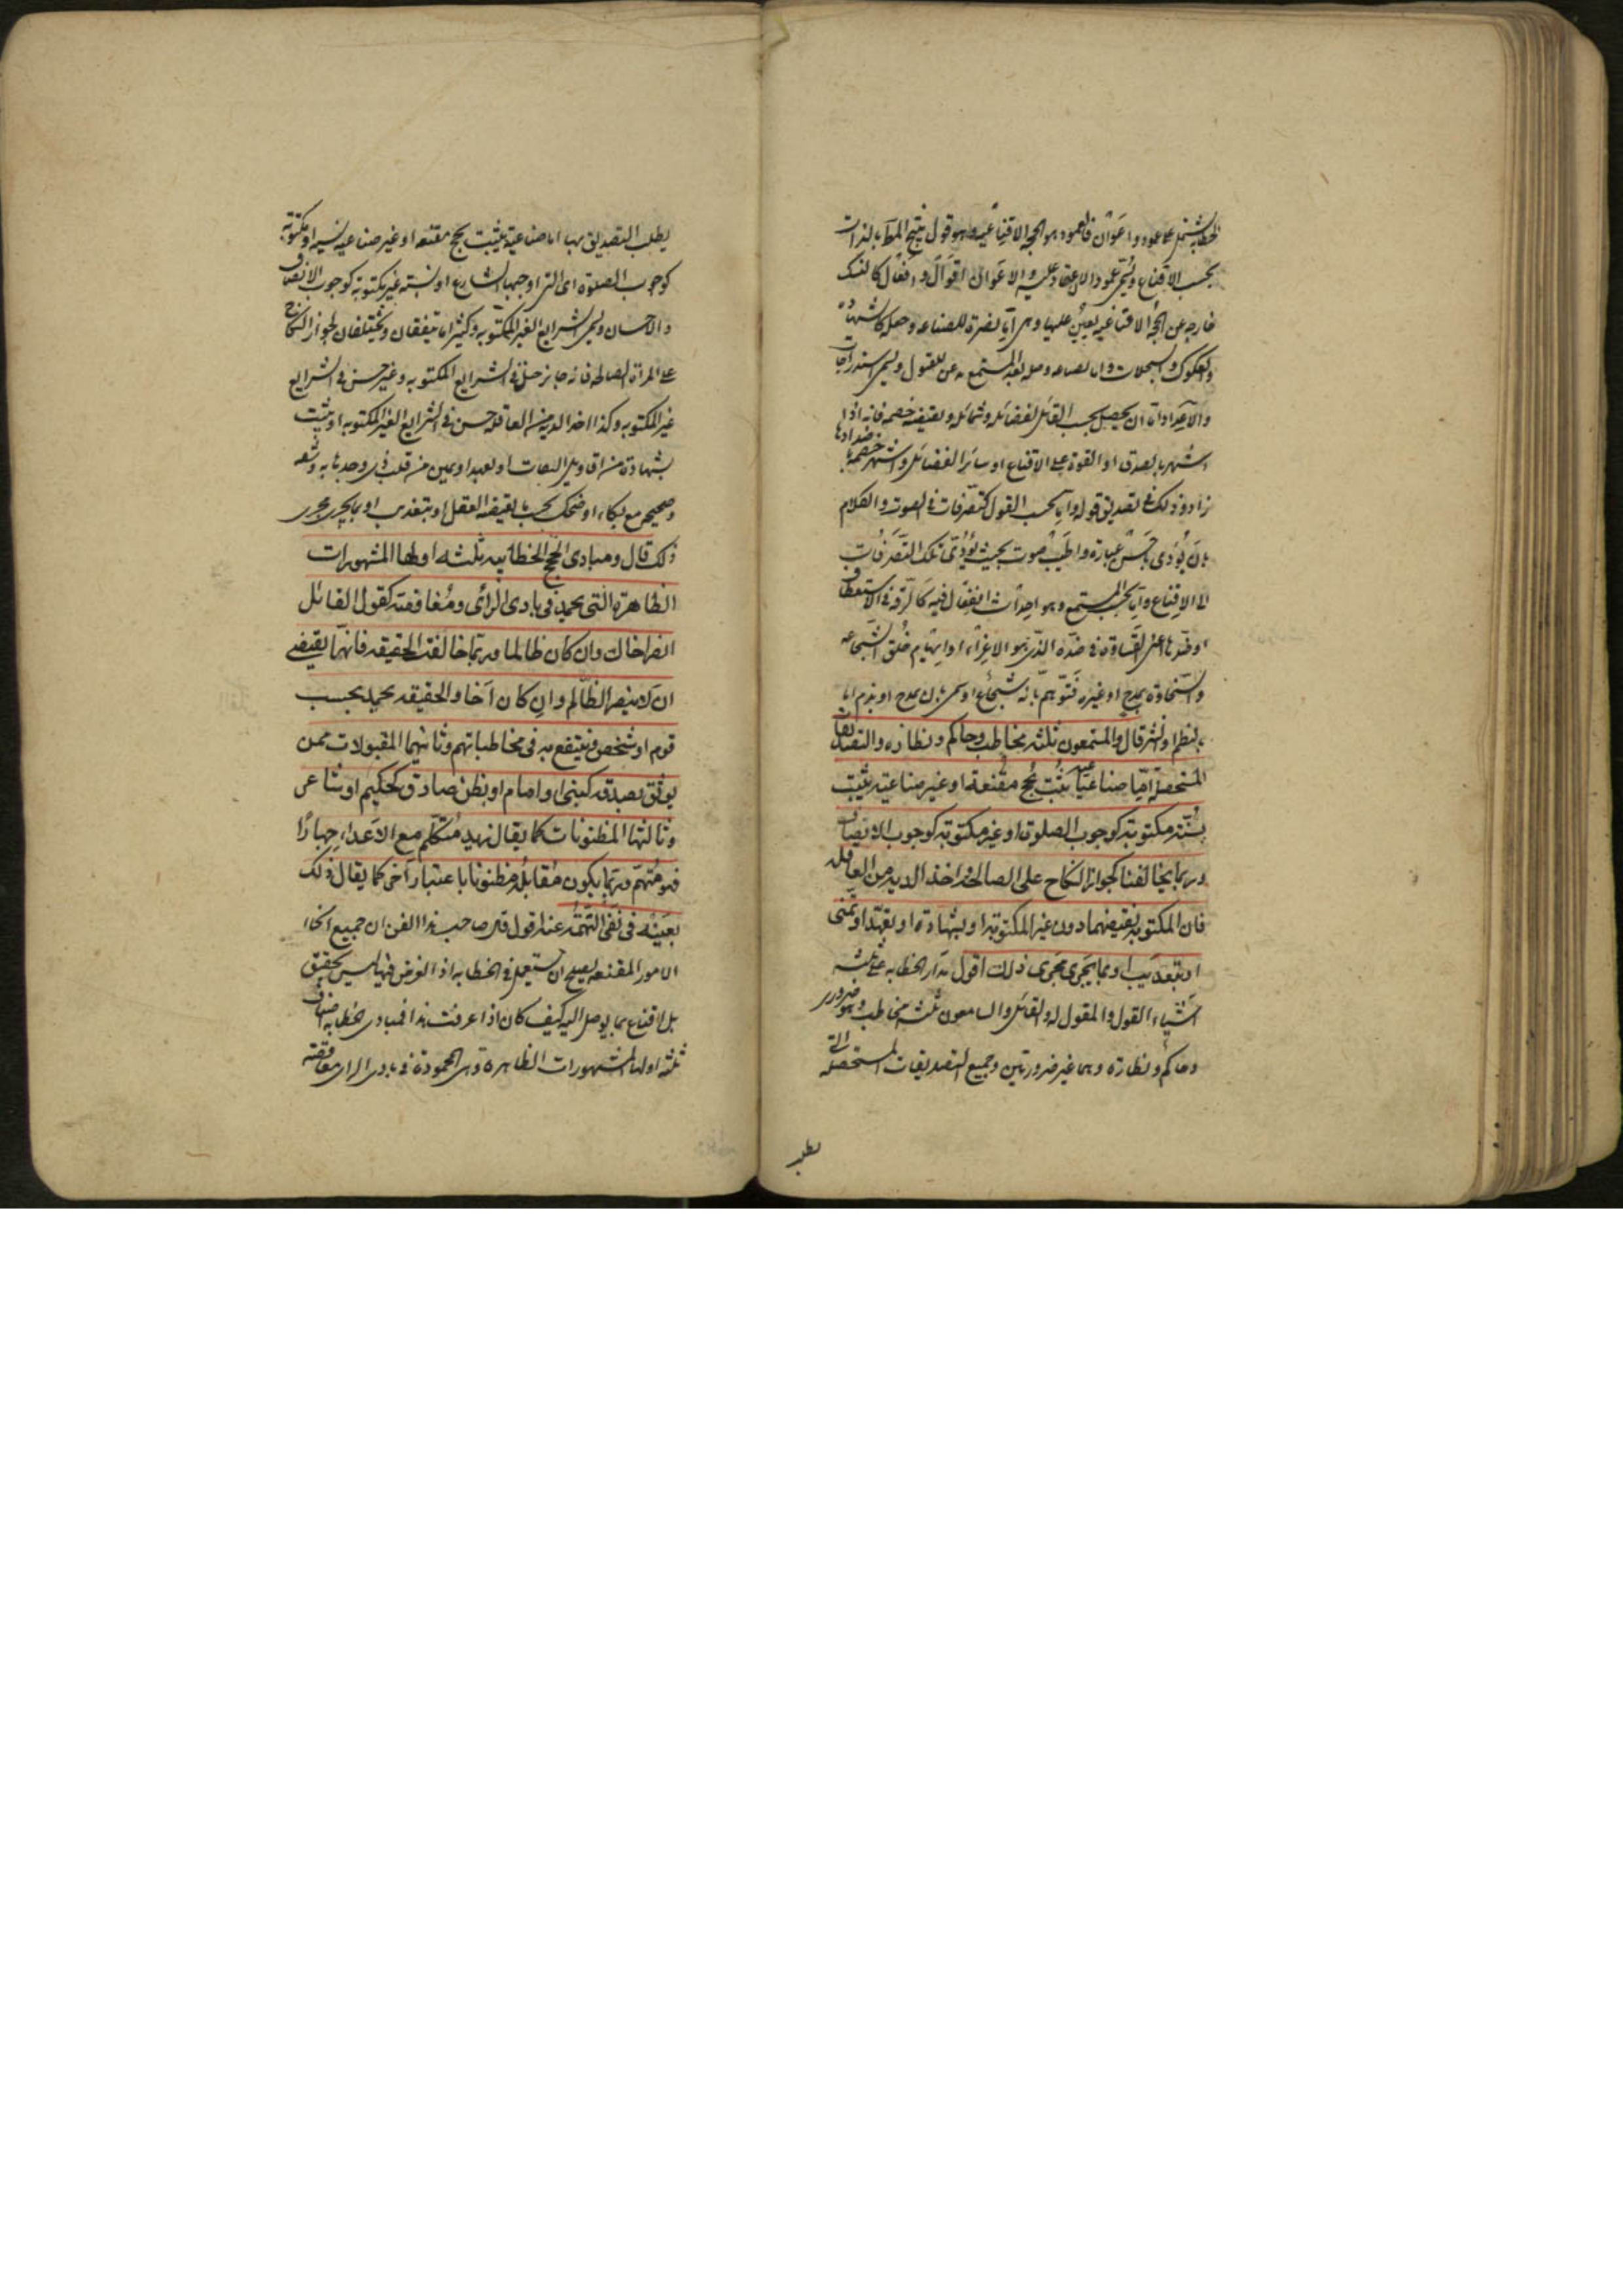 الخطابة يشتمل على عمود واعوان فالعمود هو الحجة الاقناعية وهو قول ينتج المط بالذات
بحسب الاقناع ويسمى عمود الاعتماد عليه والاعوان اقوال وافعال كالنسك
خارجه عن الحجة الاقناعيه يعين عليها وهى اما نصرة للصناعه وحيله كالشهادة
والصكوك والسجلات واما لصناعه وحيله لتعد المستمع عن للقبول ويسمى استدراجات
والاعداد اما ان يحصل بحسب القائل لفضائله وشمائله ونقيضه خصمه فانه اذا
اشتهر بالصدق او القوة على الاقناع او سائر الفضائل واشتهر خصمه باضدادها
زاد ذلك فى تصديق قوله واما بحسب القول كتصرفات فى الصوت والكلام
بان يؤدى باحسن عبارة واطيب صوت بحيث يؤدى تلك التصرفات
الى الاقناع واما بحسب المستمع وهو احداث انفعال فيه كالرقة فى الاستعطاف
او ضدها اعنى القساوة فى ضده الذى هو الاغراء او ايهام خلق الشجاعه
والسخاوة بمدح او غيره فتوهم بانه شجاع او سخى بان يمدح او يذم اما
بالنظم او النثر قال والمستمعون ثلثة مخاطب وحاكم ونظاره والتصديقات
المستحصلة اما صناعية يثبت بحج مقنعة او غير صناعية يثبت
بسنة مكتوبة كوجوب الصلوة او غير مكتوبة كوجوب الانصاف
وربما يخالفنا كجواز النكاح على الصالحة واخذ الدية من العاقله
فان المكتوبة يقتضيهما دون غير المكتوبة او بشهادة او بعهد او تمنى
او بتعذيب او بما يجرى مجرى ذلك اقول مدار الخطابه على ثلثه
اشياء القول والمقول له والقائل والسامعون ثلثه مخاطب وهو ضرورى
وحاكم ونظارة وهما غير ضروريتين وجميع التصديقات المستحصلة التى
يطلب
يطلب التصديق بها اما صناعية يثبت بحج مقنعه او غير صناعيه بسنة مكتوبة
كوجوب الصلوة اى التى اوجبها الشارع او بسنته غير مكتوبة كوجوب الانصاف
والاحسان ويسمى الشرايع الغير المكتوبه وكثيرا ما يتفقان ويختلفان كجواز النكاح
على المراة الصالحه فانه جائز حسن فى الشرايع المكتوبه وغير حسن فى الشرايع
غير المكتوبه وكذا اخذ الدية من العاقله حسن فى الشرايع الغير المكتوبه او يثبت
بشهادة من اقاويل الثقات او بعهد او يمين من قلب فى وحدها به وثقه
وصحيح مع بكاء او ضحك بحسب ما يقتضه العقل او بتعذيب او بما يجرى مجرى
ذلك قال ومبادى الحجج الخطابيه ثلثه اولها المشهورات
الظاهرة التى يحمد فى بادى الرائى ومغافصته كقول القائل
انصر اخاك وان كان ظالما وربما خالفت الحقيقه فانها تقتضى
ان لا ينصر الظالم وان كان اخا والحقيقه يحمد بحسب
قوم او شخص فينتفع به فى مخاطباتهم وثانيهما المقبولات ممن
يوثق بصدقه كنبى او امام او بظن صادق كحكيم او شاعر
وثالثها المظنونات كما يقال زيد متكلم مع الاعداء جهارا
فهو متهم وربما يكون مقابله مظنونا باعتبار آخر كما يقال ذلك
بعينه فى نفى التهمة عنه اقول قرر صاحب هذا الفن ان جميع انحاء
الامور المقنعه يصلح ان يستعمل فى الخطابه اذ الغرض فيها ليس تحقيق
بل اقناع بما يوصل اليه كيف كان اذا عرفت هذا فمبادى الخطابه اصناف
ثلثه اولها المشهورات الظاهرة وهى المحمودة فى بادى الراى مغافصة